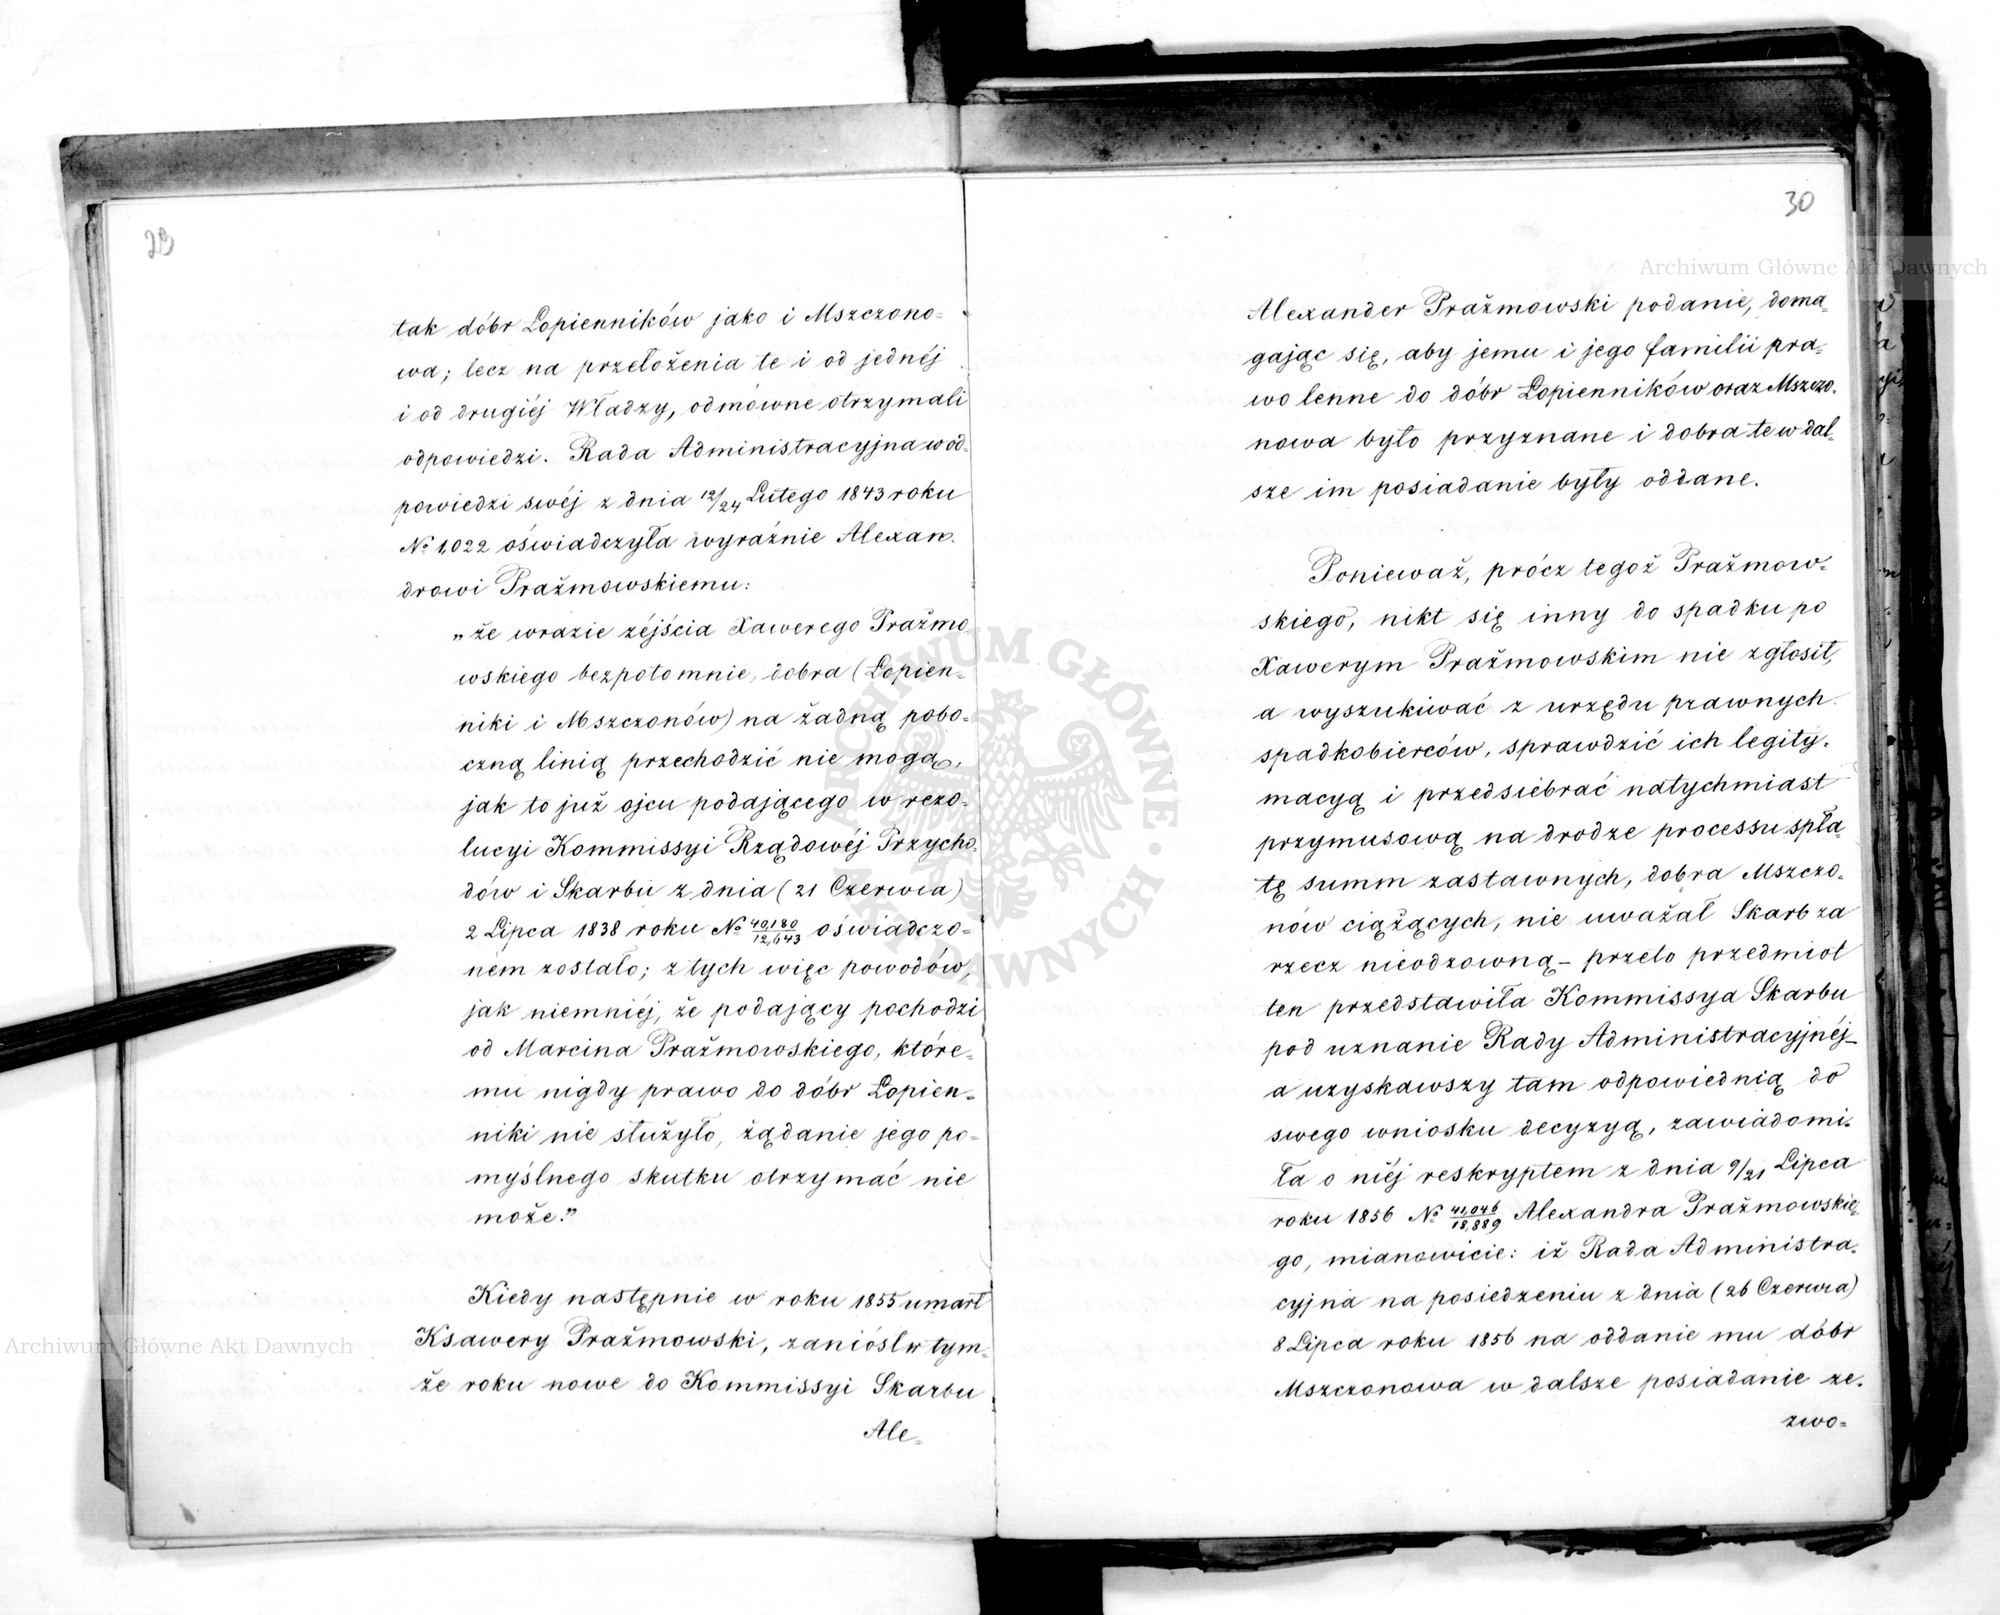 29
tak dóbr Łopienników jako i Mszczono=
wa; lecz na przełożenia te i od jednéj
i od drugiéj Władzy, odmówne otrzymali
odpowiedzi. Rada Administracyjna w od=
powiedzi swéj z dnia 12/24 Lutego 1843 roku
№ 1,022 oświadczyła wyraźnie Alexan=
drowi Prażmowskiemu:
„że wrazie zéjścia Xawerego Prażmo
wskiego bezpotomnie, dobra (Łopien=
niki i Mszczonów) na żadną pobo=
czną linią przechodzić nie mogą,
jak to już ojcu podającego w rezo=
lucyi Kommissyi Rządowéj Przycho=
dów i Skarbu z dnia (21 Czerwca)
2 Lipca 1838 roku № 40,180/12,643 oświadczo=
ném zostało; z tych więc powodów,
jak niemniéj, że podający pochodzi
od Marcina Prażmowskiego, które=
mu nigdy prawo do dóbr Łopien=
niki nie służyło, żądanie jego po=
myślnego skutku otrzymać nie
może.”
Kiedy następnie w roku 1855 umarł
Ksawery Prażmowski, zaniósł w tym=
że roku nowe do Kommissyi Skarbu
Ale=
30
Alexander Prażmowski podanie, doma=
gając się, aby jemu i jego familii pra=
wo lenne do dóbr Łopienników oraz Mszczo=
nowa było przyznane i dobra te w dal=
sze im posiadanie były oddane.
Ponieważ, prócz tegoż Prażmow=
skiego, nikt się inny do spadku po
Xawerym Prażmowskim nie zgłosił,
a wyszukiwać z urzędu prawnych
spadkobierców, sprawdzić ich legity=
macyą i przedsiebrać natychmiast
przymusową na drodze processu spła=
tę summ zastawnych, dobra Mszczo=
nów ciążących, nie uważał Skarb za
rzecz nieodzowną – przeto przedmiot
ten przedstawiła Kommissya Skarbu
pod uznanie Rady Administracyjnéj –
a uzyskawszy tam odpowiednią do
swego wniosku decyzyą, zawiadomi=
ła o niéj reskryptem z dnia 9/21 Lipca
roku 1856 № 41,046/18,889 Alexandra Prażmowskie=
go, mianowicie: iż Rada Administra=
cyjna na posiedzeniu z dnia (26 Czerwca)
8 Lipca roku 1856 na oddanie mu dóbr
Mszczonowa w dalsze posiadanie ze=
zwo=
Archiwum Główne Akt Dawnych
Archiwum Główne Akt Dawnych
ARCHIWUM GŁÓWNE AKT DAWNYCH